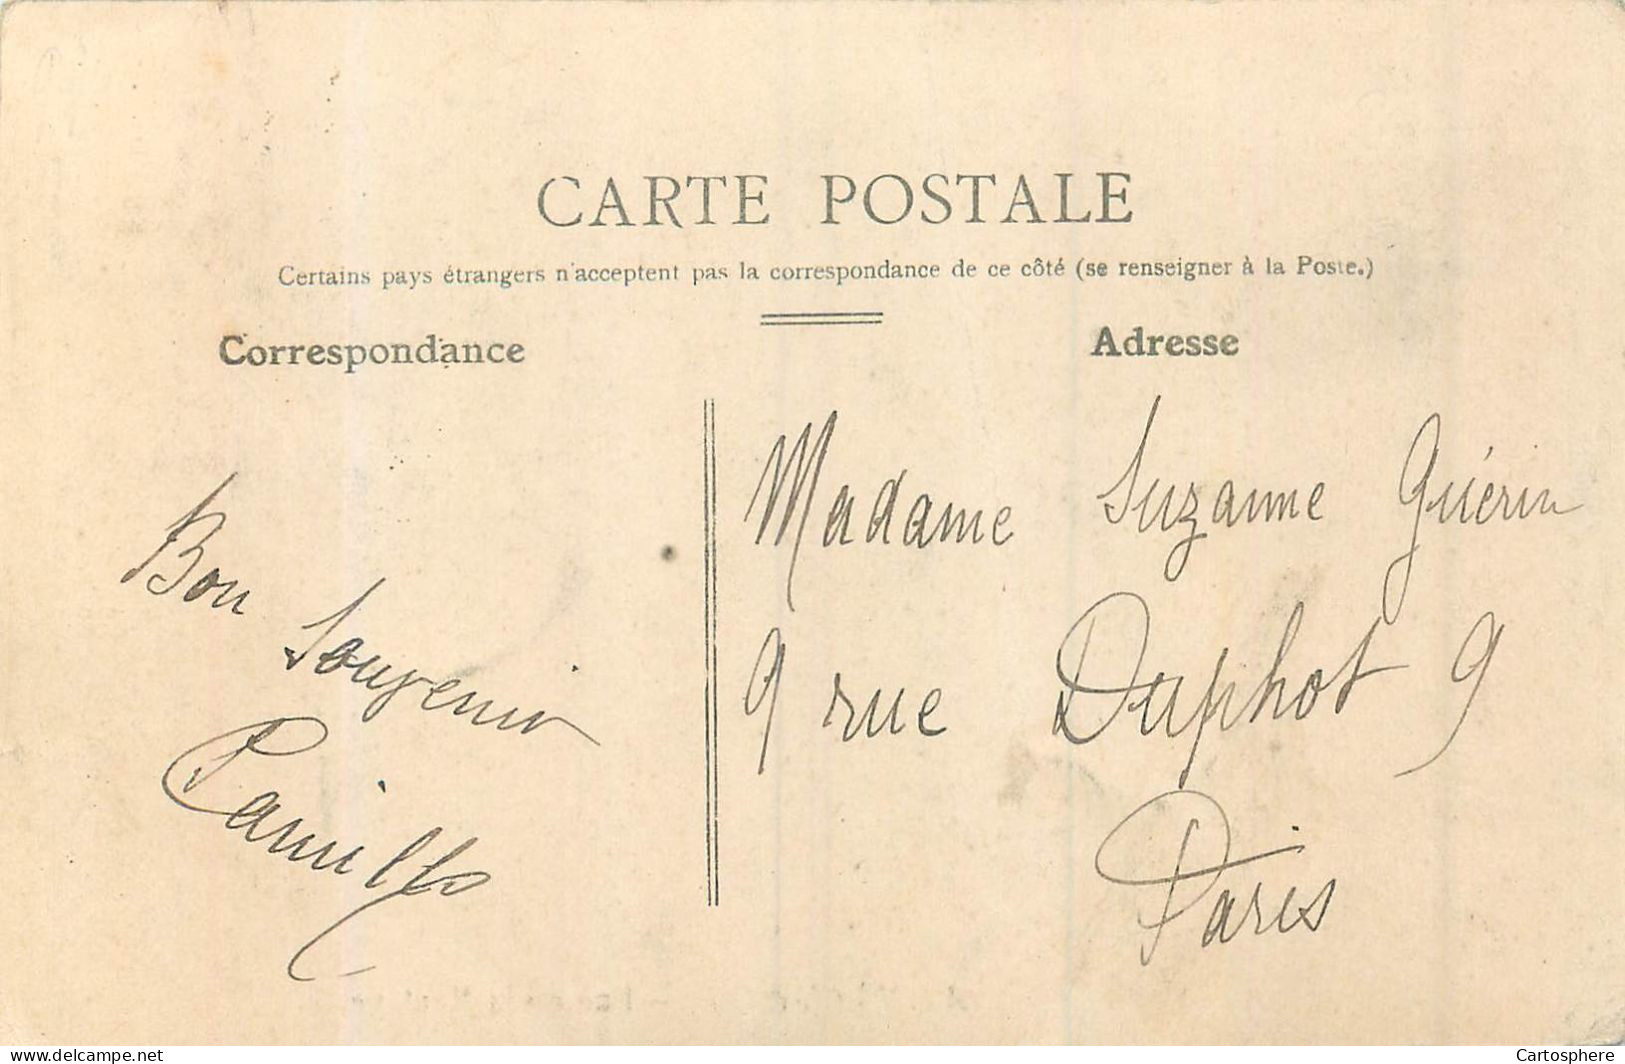 CARTE POSTALE
Certains pays étrangers n'acceptent pas la correspondance de ce côté (se renseigner à la Poste.)
Correspondance
Adresse
Bon Souvenir
Camille
Madame Suzanne Guérin
9 rue Duphot 9
Paris
www.delcampe.net
Cartosphere